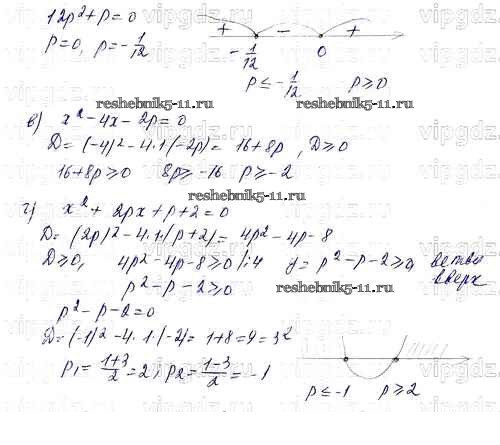 12p²+p=0
p=0, p=-1/12
+ - +
-1/12 0
p≤-1/12 p≥0
reshebnik5-11.ru
в) x²-4x-2p=0
D=(-4)²-4·1·(-2p)= 16+8p , D≥0
16+8p≥0 8p≥-16 p≥-2
reshebnik5-11.ru
г) x²+2px+p+2=0
D=(2p)²-4·1·(p+2)= 4p²-4p-8
D≥0, 4p²-4p-8≥0 |:4 y=p²-p-2≥0, ветви вверх
p²-p-2≥0
reshebnik5-11.ru
p²-p-2=0
D=(-1)²-4·1·(-2)=1+8=9=3²
p₁=(1+3)/2=2, p₂=(1-3)/2=-1
p≤-1 p≥2
vipgdz.ru